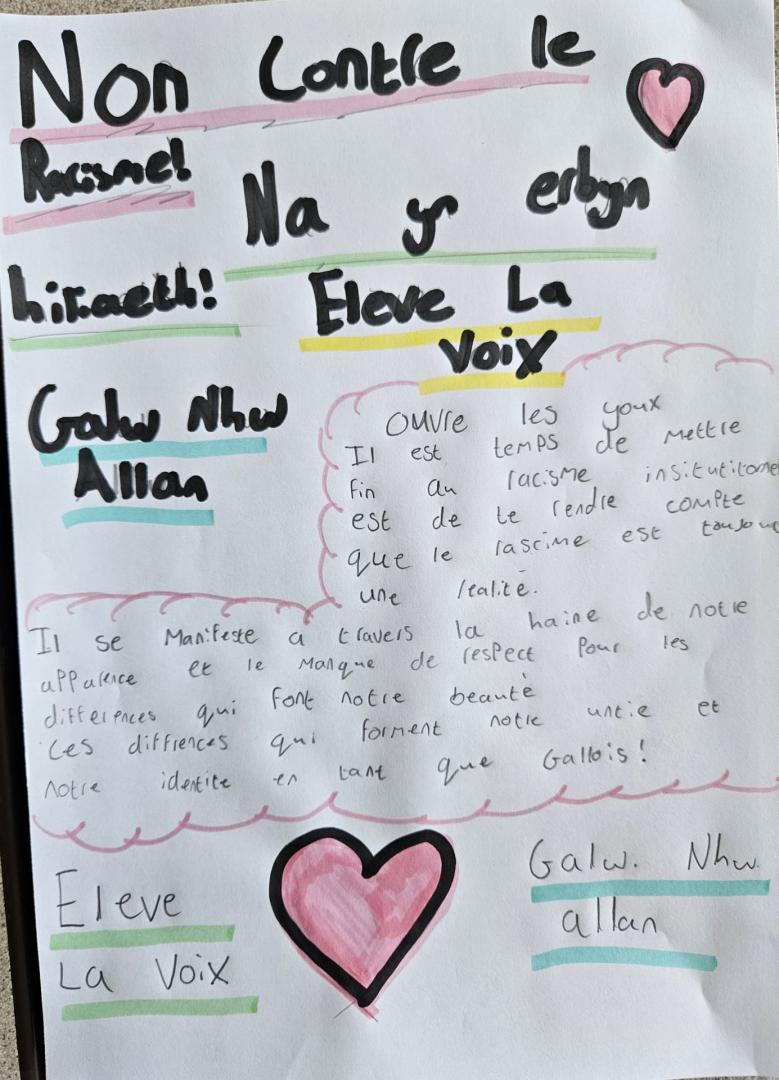 Non Contre le
Racisme!
Na yr erbyn
hiraeth!
Eleve La
Voix
Galw Nhw
Allan
Ouvre les youx
Il est temps de mettre
fin au racisme
est de te rendre compte
que le rascime est
une réalité.
Il se manifeste a travers la haine de notre
apparence et le manque de respect pour les
differences qui font notre beauté
Ces diffrences qui forment notre untie et
notre identite en tant que Gallois!
Eleve
La Voix
Galw. Nhw.
allan